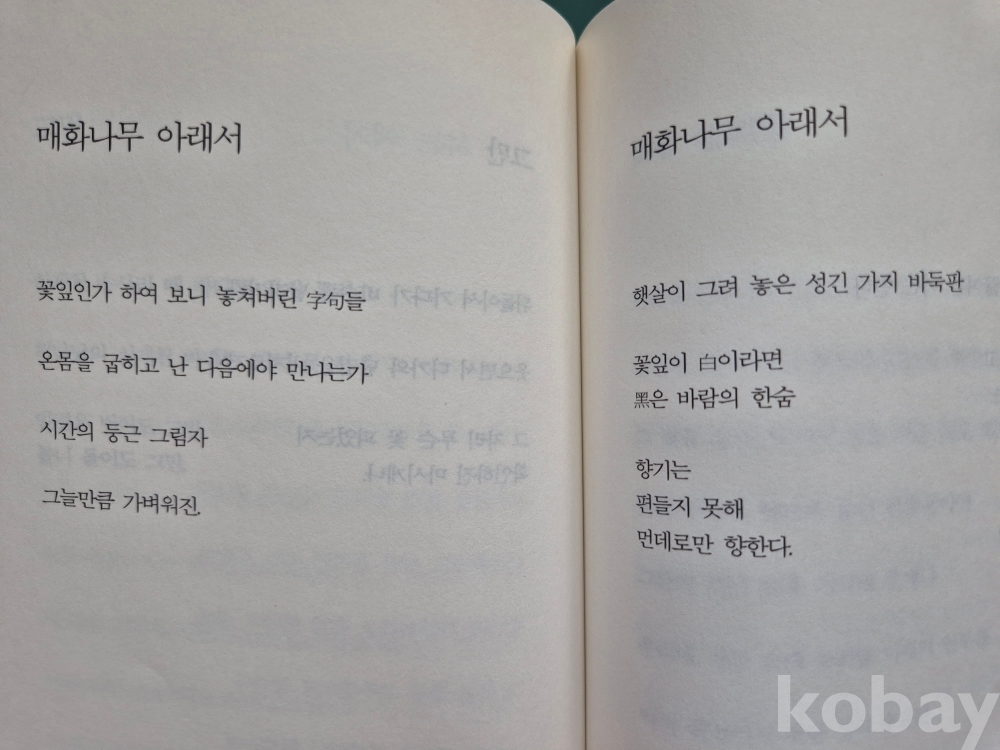 매화나무 아래서
꽃잎인가 하여 보니 놓쳐버린 字句들
온몸을 굽히고 난 다음에야 만나는가
시간의 둥근 그림자
그늘만큼 가벼워진.
매화나무 아래서
햇살이 그려 놓은 성긴 가지 바둑판
꽃잎이 白이라면
黑은 바람의 한숨
향기는
편들지 못해
먼데로만 향한다.
kobay